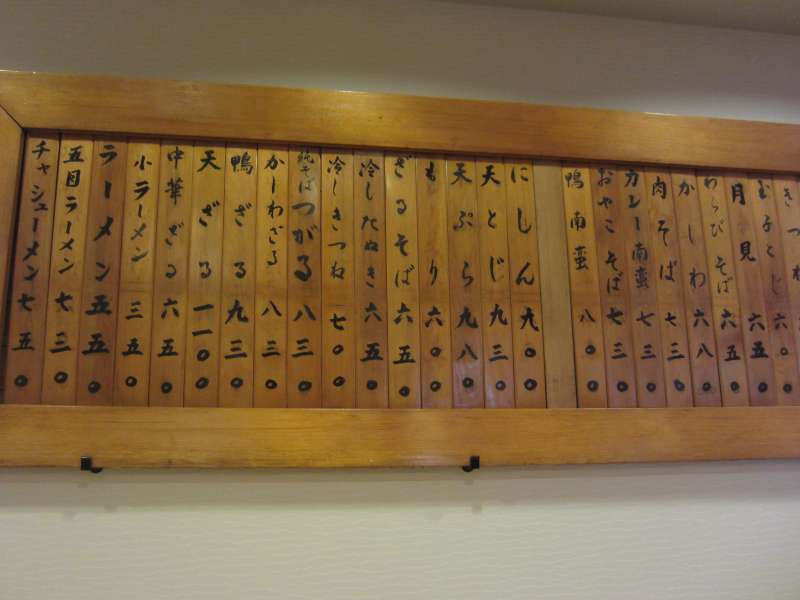 きつね
玉子とじ 六
月見 六五〇
わらびそば 六五〇
かしわ 六八〇
肉そば 七三〇
カレー南蛮 七三〇
おやこそば 七三〇
鴨南蛮 八〇〇
にしん 九〇〇
天とじ 九三〇
天ぷら 九八〇
もり 六〇〇
ざるそば 六五〇
冷したぬき 六五〇
冷しきつね 七〇〇
純そばつがる 八三〇
かしわざる 八三〇
鴨ざる 九三〇
天ざる 一一〇〇
中華ざる 六五〇
小ラーメン 三五〇
ラーメン 五五〇
五目ラーメン 七三〇
チャシューメン 七五〇